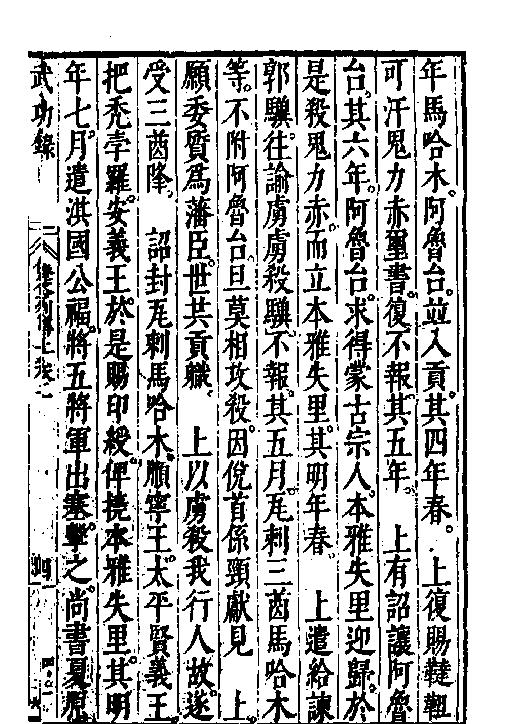 年馬哈木。阿魯台。並入貢。其四年春。 上復賜韃靼
可汗鬼力赤璽書。復不報。其五年。 上有詔讓阿魯
台。其六年。阿魯台。求得蒙古宗人。本雅失里迎歸。於
是殺鬼力赤。而立本雅失里。其明年春。 上遣給諫
郭驥。往諭虜。虜殺驥。不報。其五月。瓦剌三酋馬哈木
等。不附阿魯台。旦莫相攻殺。因俛首係頸獻見 上。
願委質爲藩臣。世共貢職。 上以虜殺我行人故。遂
受三酋降。 詔封瓦剌馬哈木。順寧王。太平賢義王。
把禿孛羅。安義王。於是賜印綬。俾撓本雅失里。其明
年七月。遣淇國公福。將五將軍出塞擊之。尚書夏原
武功錄